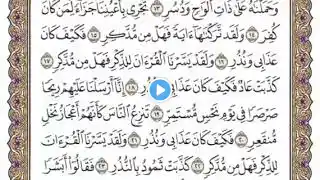 وَحَمَلْنَٰهُ عَلَىٰ ذَاتِ أَلْوَٰحٍ وَدُسُرٍ ١٣ تَجْرِى بِأَعْيُنِنَا جَزَآءً لِّمَن كَانَ
كُفِرَ ١٤ وَلَقَد تَّرَكْنَٰهَآ ءَايَةً فَهَلْ مِن مُّدَّكِرٍ ١٥ فَكَيْفَ كَانَ
عَذَابِى وَنُذُرِ ١٦ وَلَقَدْ يَسَّرْنَا ٱلْقُرْءَانَ لِلذِّكْرِ فَهَلْ مِن مُّدَّكِرٍ ١٧
كَذَّبَتْ عَادٌ فَكَيْفَ كَانَ عَذَابِى وَنُذُرِ ١٨ إِنَّآ أَرْسَلْنَا عَلَيْهِمْ رِيحًا
صَرْصَرًا فِى يَوْمِ نَحْسٍ مُّسْتَمِرٍّ ١٩ تَنزِعُ ٱلنَّاسَ كَأَنَّهُمْ أَعْجَازُ نَخْلٍ
مُّنقَعِرٍ ٢٠ فَكَيْفَ كَانَ عَذَابِى وَنُذُرِ ٢١ وَلَقَدْ يَسَّرْنَا ٱلْقُرْءَانَ
لِلذِّكْرِ فَهَلْ مِن مُّدَّكِرٍ ٢٢ كَذَّبَتْ ثَمُودُ بِٱلنُّذُرِ ٢٣ فَقَالُوٓا۟ أَبَشَرًا